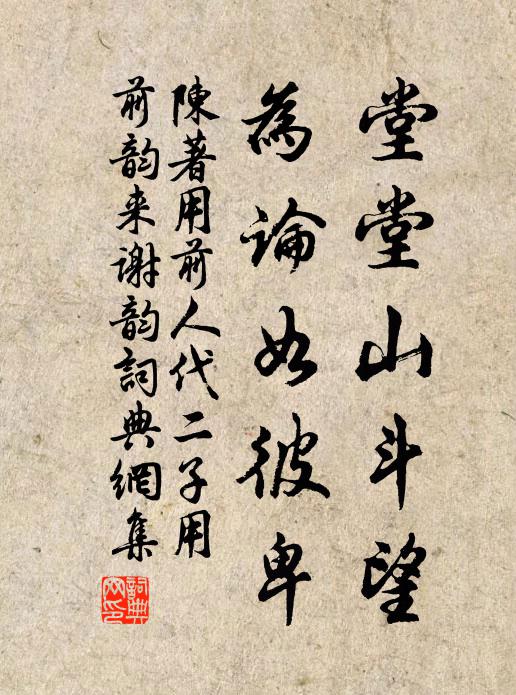 堂堂山斗望
為論如彼卑
陳著用前人代二子用
前韵来謝韵詞典網集
詞典
网印